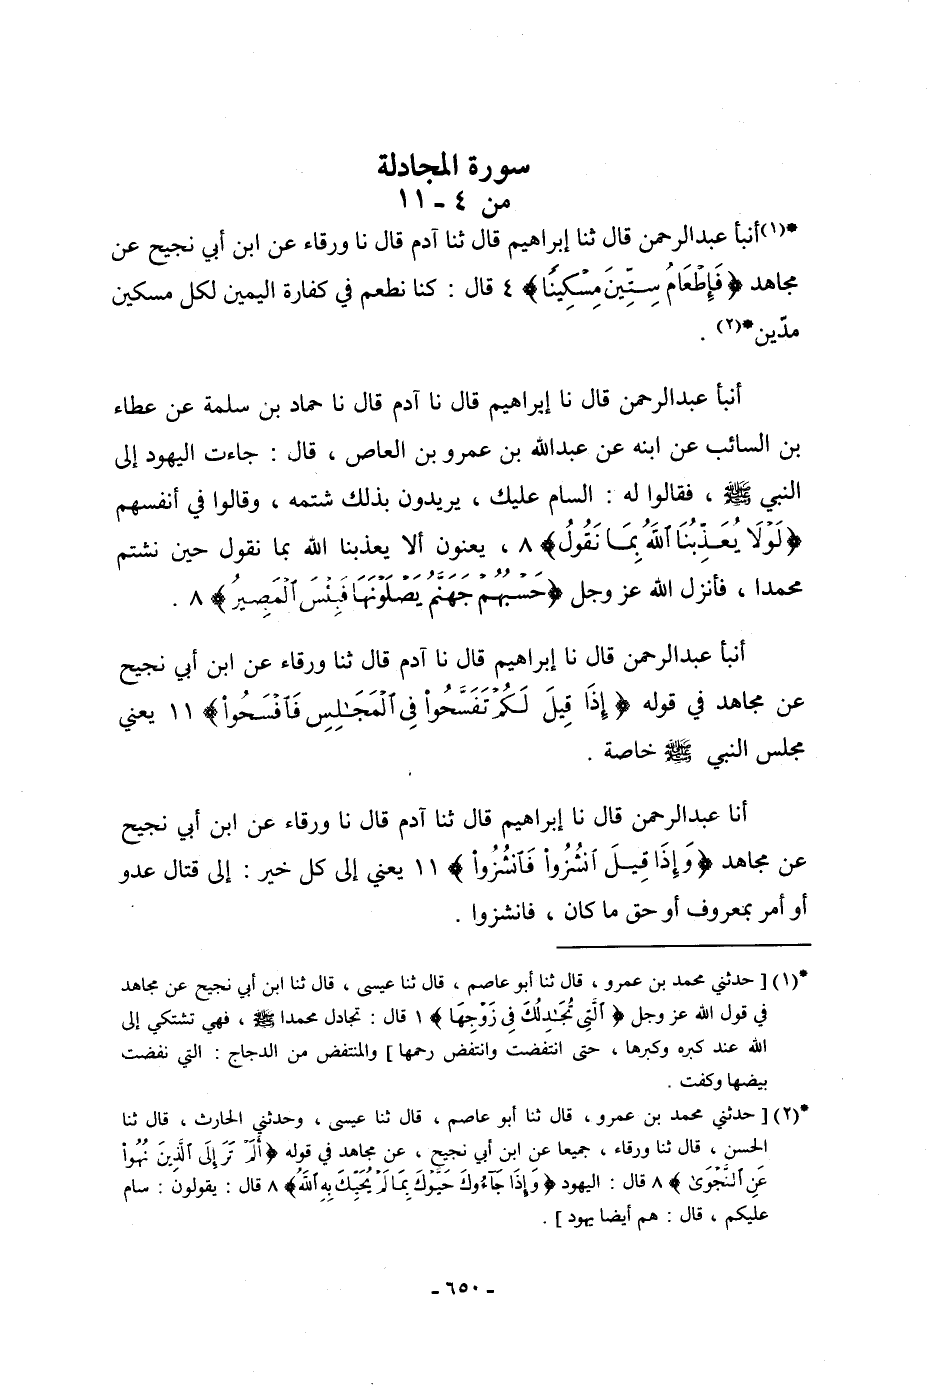 سورة المجادلة
من ٤ - ١١
*(١)أنبأ عبدالرحمن قال ثنا إبراهيم قال ثنا آدم قال نا ورقاء عن ابن أبي نجيح عن
مجاهد ﴿فَإِطْعَامُ سِتِّينَ مِسْكِينًا﴾ ٤ قال : كنا نطعم في كفارة اليمين لكل مسكين
مدّين*(٢) .
أنبأ عبدالرحمن قال نا إبراهيم قال نا آدم قال نا حماد بن سلمة عن عطاء
بن السائب عن ابنه عن عبدالله بن عمرو بن العاص ، قال : جاءت اليهود إلى
النبي ﷺ ، فقالوا له : السام عليك ، يريدون بذلك شتمه ، وقالوا في أنفسهم
﴿لَوْلَا يُعَذِّبُنَا ٱللَّهُ بِمَا نَقُولُ﴾ ٨ ، يعنون ألا يعذبنا الله بما نقول حين نشتم
محمدا ، فأنزل الله عز وجل ﴿حَسْبُهُمْ جَهَنَّمُ يَصْلَوْنَهَا فَبِئْسَ ٱلْمَصِيرُ﴾ ٨ .
أنبأ عبدالرحمن قال نا إبراهيم قال نا آدم قال ثنا ورقاء عن ابن أبي نجيح
عن مجاهد في قوله ﴿ إِذَا قِيلَ لَكُمْ تَفَسَّحُوا۟ فِى ٱلْمَجَٰلِسِ فَٱفْسَحُوا۟﴾ ١١ يعني
مجلس النبي ﷺ خاصة .
أنا عبدالرحمن قال نا إبراهيم قال ثنا آدم قال نا ورقاء عن ابن أبي نجيح
عن مجاهد ﴿وَإِذَا قِيلَ ٱنشُزُوا۟ فَٱنشُزُوا۟ ﴾ ١١ يعني إلى كل خير : إلى قتال عدو
أو أمر بمعروف أو حق ما كان ، فانشزوا .
*(١) [ حدثني محمد بن عمرو ، قال ثنا أبو عاصم ، قال ثنا عيسى ، قال ثنا ابن أبي نجيح عن مجاهد
في قول الله عز وجل ﴿ ٱلَّتِى تُجَٰدِلُكَ فِى زَوْجِهَا ﴾ ١ قال : تجادل محمدا ﷺ ، فهي تشتكي إلى
الله عند كبره وكبرها ، حتى انتفضت وانتفض رحمها ] والمنتفض من الدجاج : التي نفضت
بيضها وكفت .
*(٢) [ حدثني محمد بن عمرو ، قال ثنا أبو عاصم ، قال ثنا عيسى ، وحدثني الحارث ، قال ثنا
الحسن ، قال ثنا ورقاء ، جميعا عن ابن أبي نجيح ، عن مجاهد في قوله ﴿أَلَمْ تَرَ إِلَى ٱلَّذِينَ نُهُوا۟
عَنِ ٱلنَّجْوَىٰ ﴾ ٨ قال : اليهود ﴿وَإِذَا جَآءُوكَ حَيَّوْكَ بِمَا لَمْ يُحَيِّكَ بِهِ ٱللَّهُ﴾ ٨ قال : يقولون : سام
عليكم ، قال : هم أيضا يهود ] .
- ٦٥٠ -